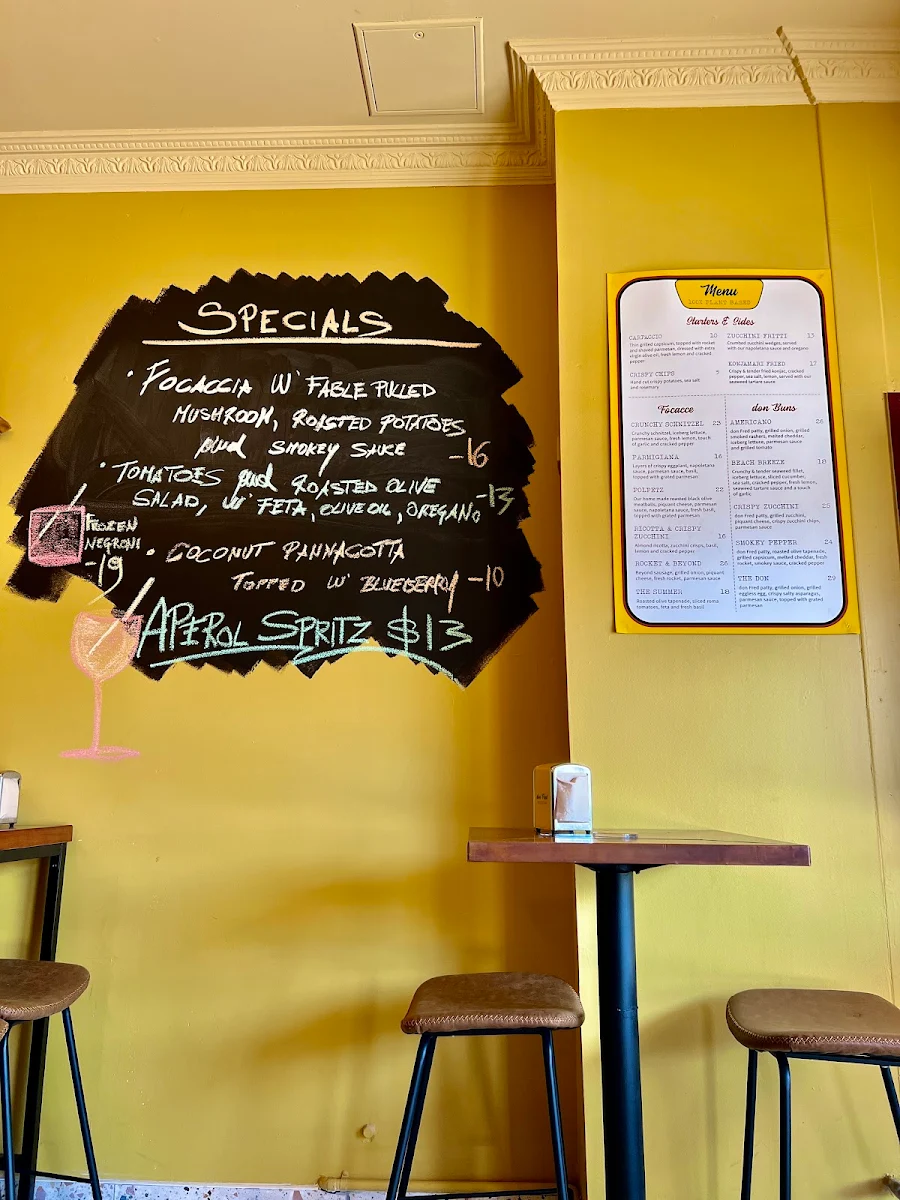 SPECIALS
· FOCACCIA W' FABLE PULLED
MUSHROOM, ROASTED POTATOES
and SMOKEY SAUCE -16
· TOMATOES and ROASTED OLIVE
SALAD, W' FETA, OLIVE OIL, OREGANO -13
FROZEN
NEGRONI
-19
· COCONUT PANNACOTTA
TOPPED W' BLUEBERRY -10
APEROL SPRITZ $13
Menu
100% PLANT BASED
Starters & Sides
CARPACCIO 10
Thin grilled capsicum, topped with rocket
and shaved parmesan, dressed with extra
virgin olive oil, fresh lemon and cracked
pepper
CRISPY CHIPS
Hand cut crispy potatoes, sea salt
and rosemary
ZUCCHINI FRITTI 13
Crumbed zucchini wedges, served
with our napoletana sauce and oregano
KONJAMARI FRIED 17
Crispy & tender fried konjac, cracked
pepper, sea salt, lemon, served with our
seaweed tartare sauce
Focacce
CRUNCHY SCHNITZEL 23
Crunchy schnitzel, iceberg lettuce,
parmesan sauce, fresh lemon, touch
of garlic and cracked pepper
PARMIGIANA 16
Layers of crispy eggplant, napoletana
sauce, parmesan sauce, basil,
topped with grated parmesan
POLPETZ 22
Our home made roasted black olive
meatballs, piquant cheese, parmesan
sauce, napoletana sauce, fresh basil,
topped with grated parmesan
RICOTTA & CRISPY
ZUCCHINI 16
Almond ricotta, zucchini crisps, basil,
lemon and cracked pepper
ROCKET & BEYOND 26
Beyond sausage, grilled onion, piquant
cheese, fresh rocket, parmesan sauce
THE SUMMER 18
Roasted olive tapenade, sliced roma
tomatoes, feta and fresh basil
don Buns
AMERICANO 26
don Fred patty, grilled onion, grilled
smoked rashers, melted cheddar,
iceberg lettuce, parmesan sauce
and grilled tomato
BEACH BREEZE 18
Crunchy & tender seaweed fillet,
iceberg lettuce, sliced cucumber,
sea salt, cracked pepper, fresh lemon,
seaweed tartare sauce and a touch
of garlic
CRISPY ZUCCHINI 25
don Fred patty, grilled zucchini,
piquant cheese, crispy zucchini chips,
parmesan sauce
SMOKEY PEPPER 24
don Fred patty, roasted olive tapenade,
grilled capsicum, melted cheddar, fresh
rocket, smokey sauce, cracked pepper
THE DON 29
don Fred patty, grilled onion, grilled
eggless egg, crispy salty asparagus,
parmesan sauce, topped with grated
parmesan